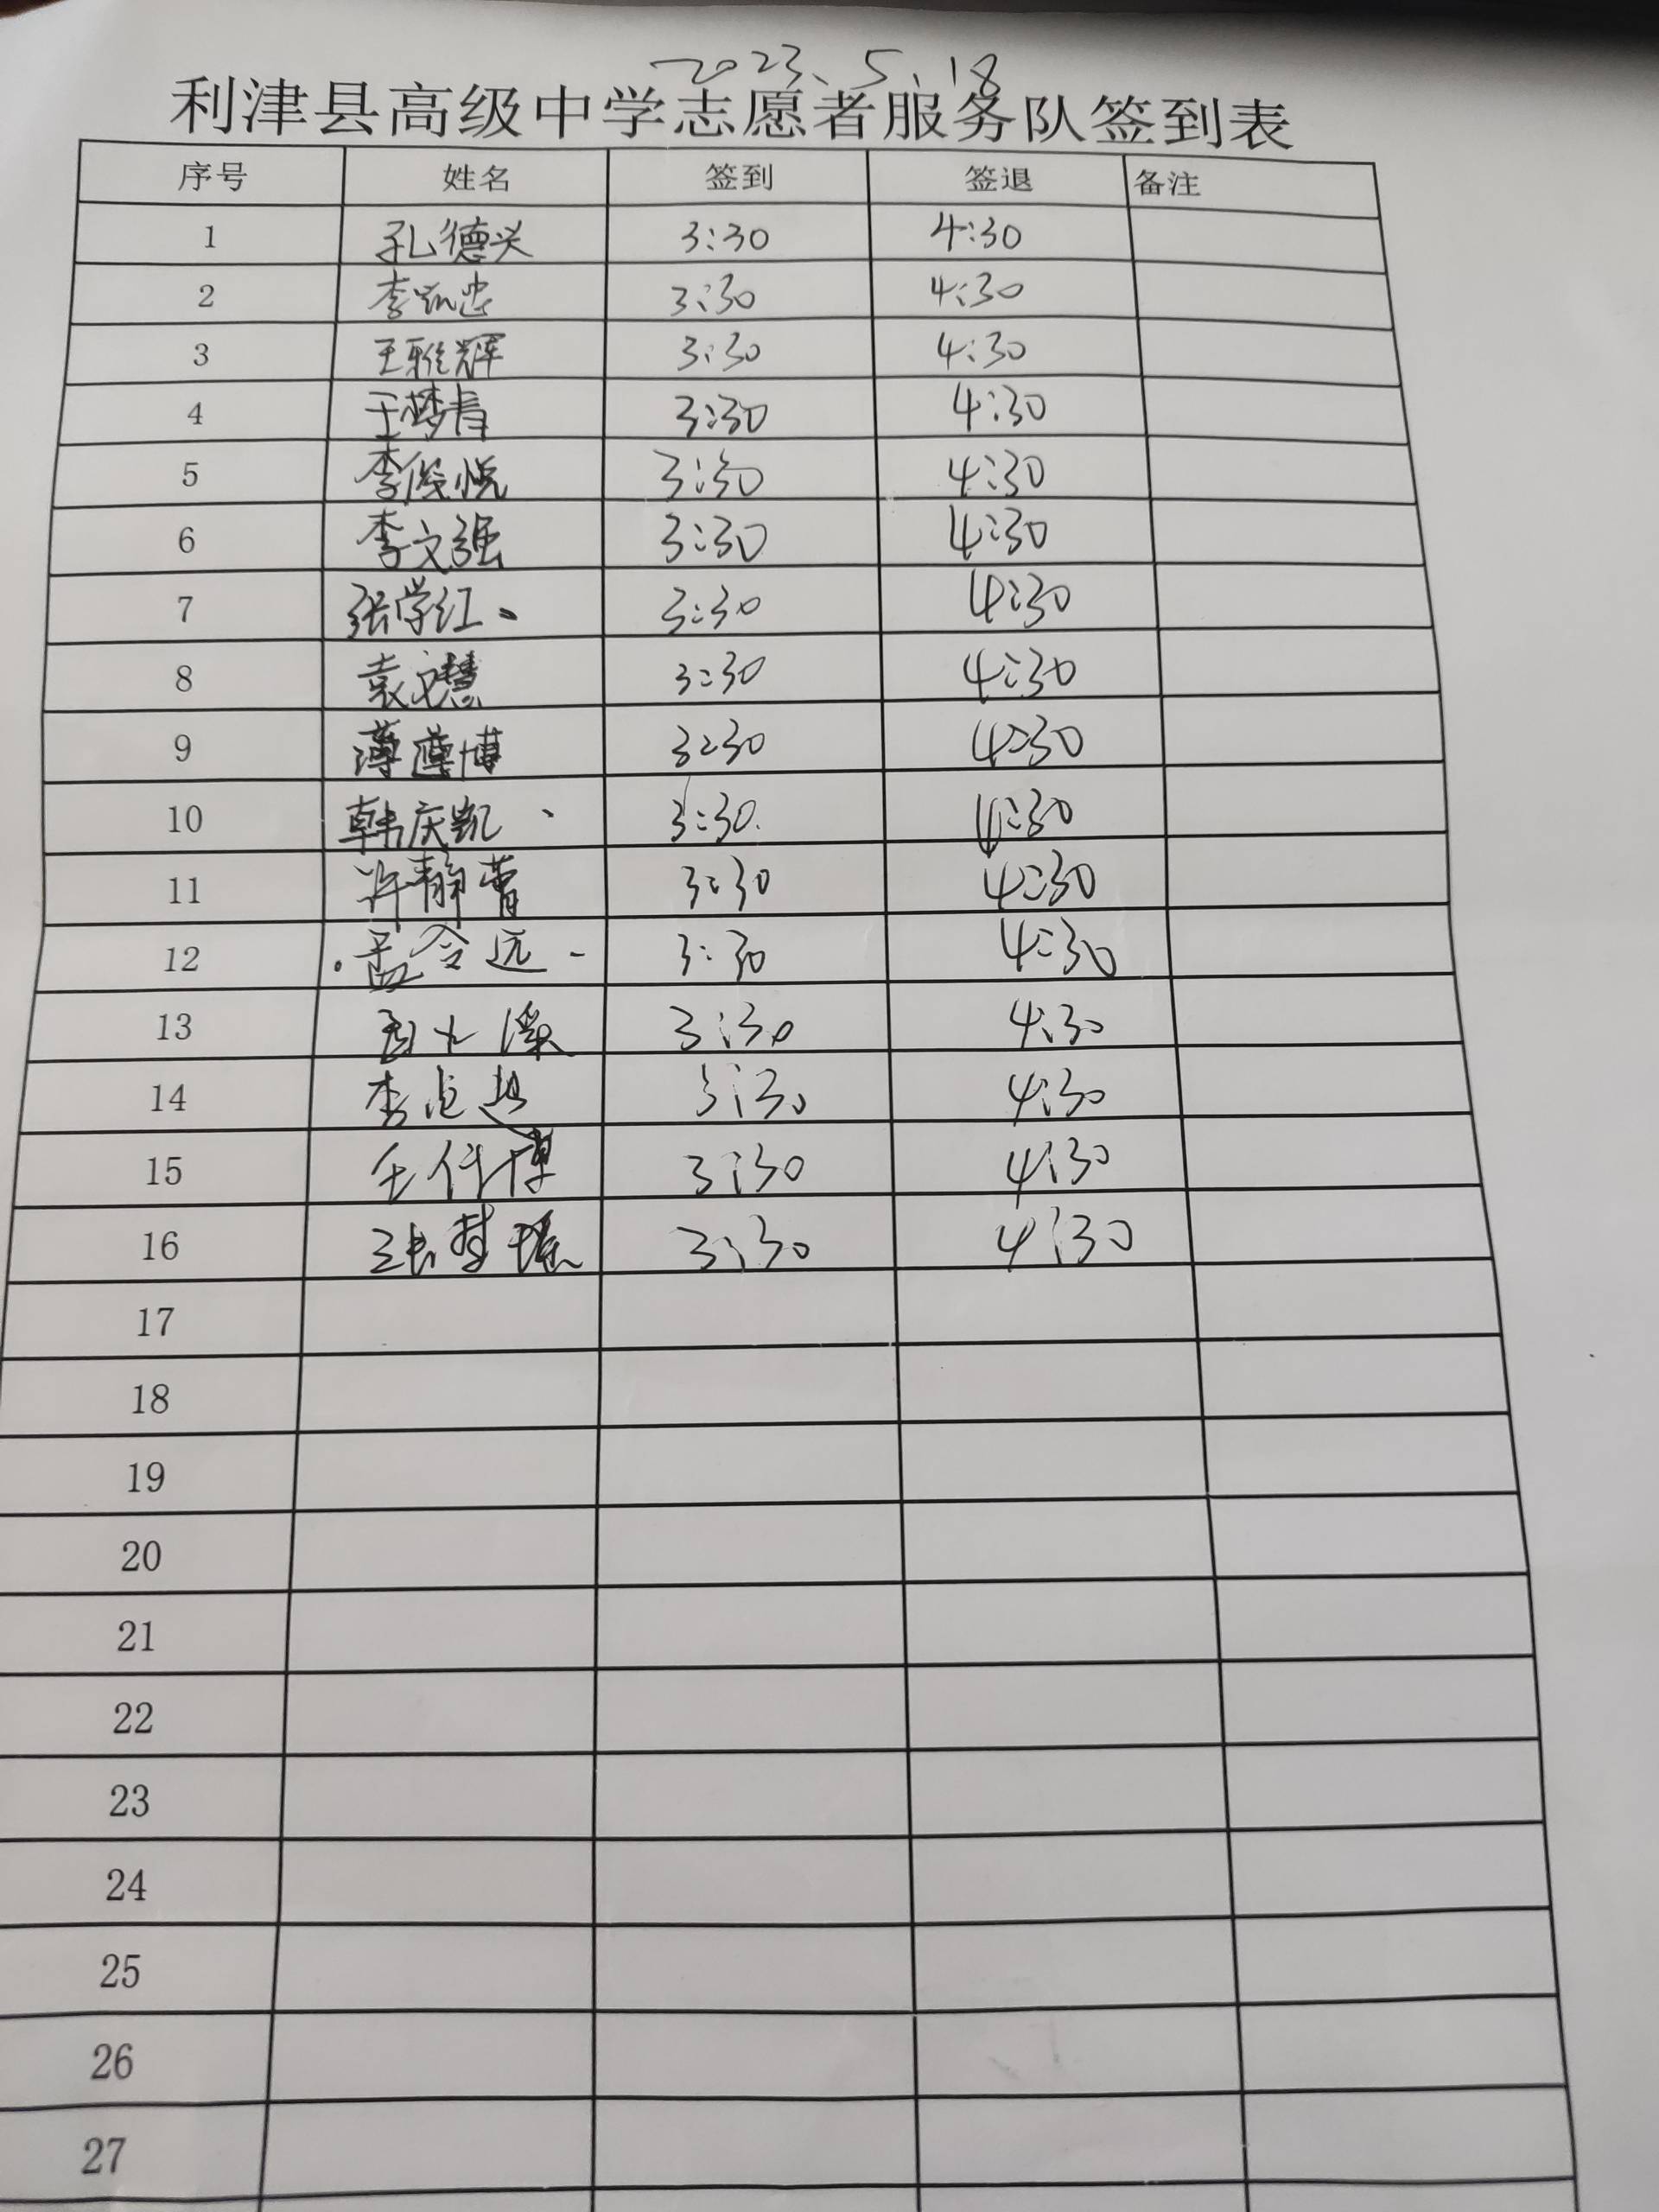 2023、5、18
利津县高级中学志愿者服务队签到表
序号 姓名 签到 签退 备注
1 孔德兴 3:30 4:30
2 李凯忠 3:30 4:30
3 王雅辉 3:30 4:30
4 王梦青 3:30 4:30
5 李俊悦 3:30 4:30
6 李文强 3:30 4:30
7 张学红 3:30 4:30
8 袁文慧 3:30 4:30
9 薄遵博 3:30 4:30
10 韩庆凯 3:30 4:30
11 许静蕾 3:30 4:30
12 孟令远 3:30 4:30
13 3:30 4:30
14 李 3:30 4:30
15 3:30 4:30
16 张梦瑶 3:30 4:30
17
18
19
20
21
22
23
24
25
26
27